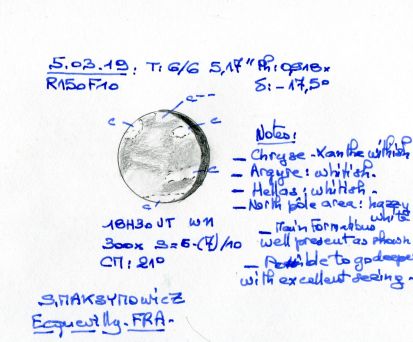 5.03.19 : T: 6/6 5,17" Ph: 0,918x
R150F10 δ: -17,5°
c--
c c
c
c
Notes:
– Chryse-Xanthe whitish
– Argyre: whitish.
– Hellas: whitish.
– North pole area: hazy
white
– Main Formations
well present as shown
– Possible to go deeper
with excellent seeing.
18H30 UT
300x S=6-(7)/10
CM: 21°
S.MAKSYMOWICZ
Ecquevilly. FRA.